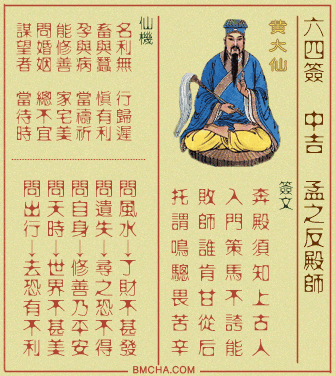 六四簽 中吉 孟之反殿師
黃大仙
簽文
奔殿須知上古人
入門策馬不誇能
敗師誰肯甘從后
托謂鳴驄畏苦辛
仙機
名利無 行歸遲
畜與蠶 慎有利
孕與病 當禱祈
能修善 家宅美
問婚姻 總不宜
謀望者 當待時
問風水→了財不甚發
問遺失→尋之恐不得
問自身→修善乃平安
問天時→世界不甚美
問出行→去恐有不利
BMCHA.COM